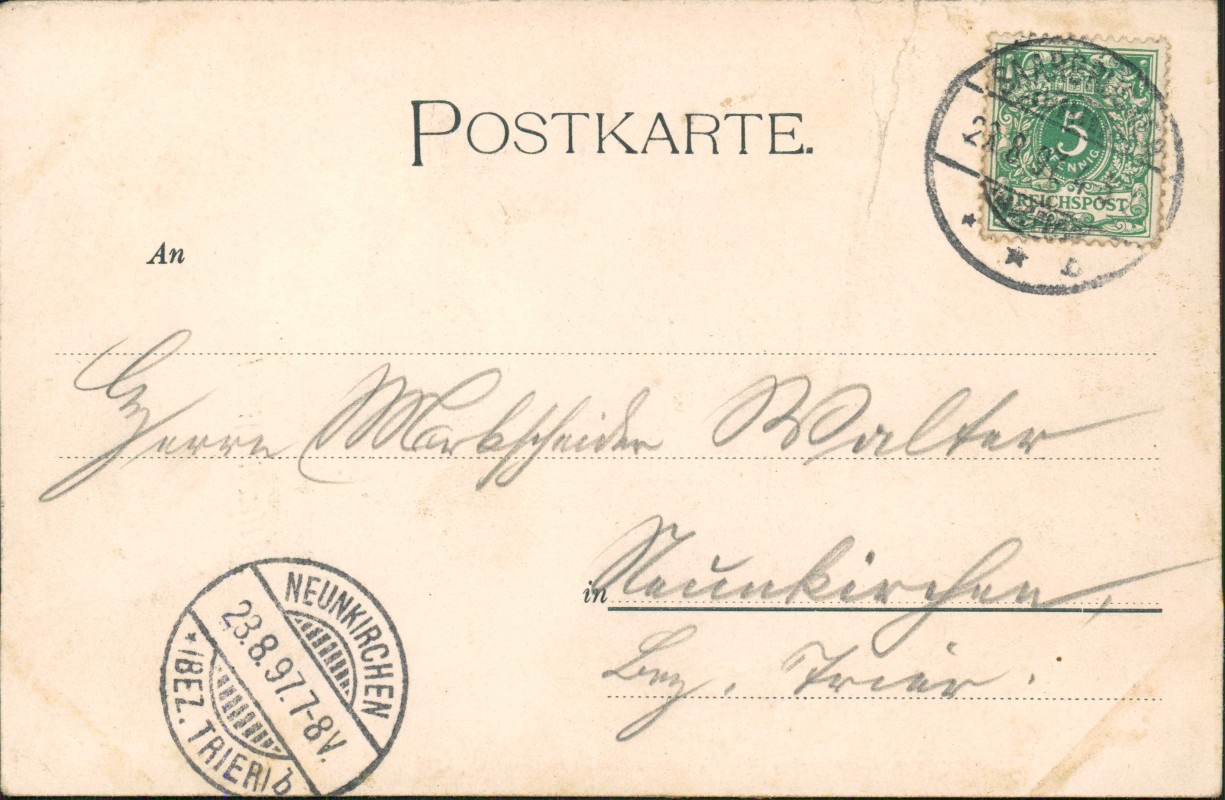 POSTKARTE.
5
PFENNIG
REICHSPOST
8.97
b
An
Herrn Markscheider Walter
in Neunkirchen,
Bez. Trier.
NEUNKIRCHEN
23.8.97.7-8V.
* (BEZ. TRIER) b